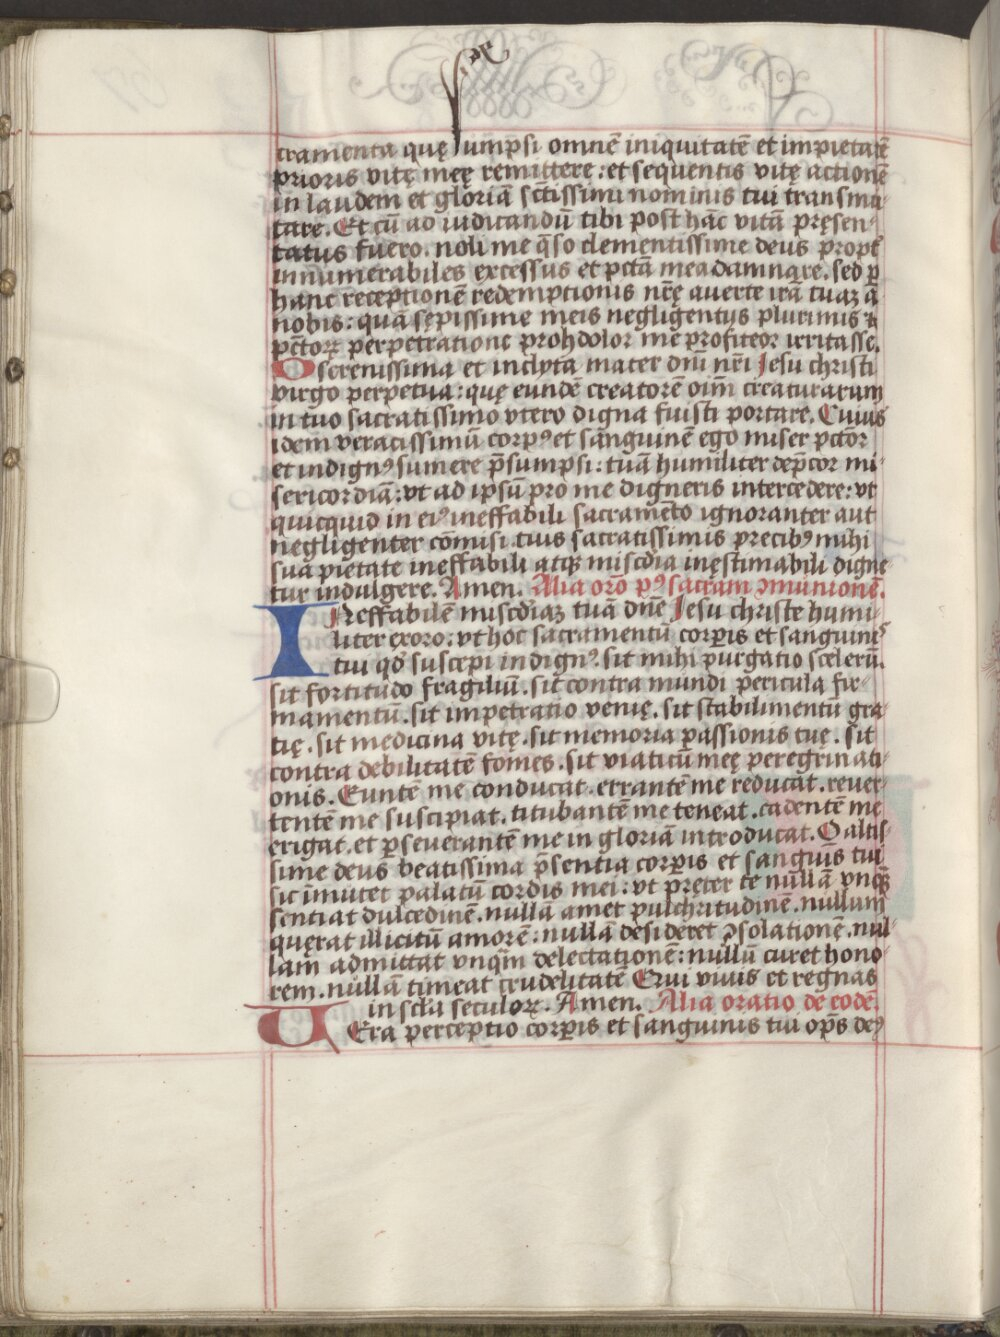 cramenta quę sumpsi omnē iniquitatē et impietatē
prioris vitę meę remittere : et sequentis vitę actionē
in laudem et gloriā sctissimi nominis tui transmu-
tare. Et cū ad iudicandū tibi post hac vitā pręsen-
tatus fuero. noli me q̄so clementissime deus propt̄
innumerabiles excessus et pctā mea damnare. sed ꝑ
hanc receptionē redemptionis nr̄ę auerte irā tuaꝫ a
nobis : quā sępissime meis negligentijs plurimis &
pctōꝝ perpetratione prohdolor me profiteor irritasse.
O serenissima et inclyta mater dnī nr̄i Jesu christi
virgo perpetua : quę eundē creatorē oim̄ creaturarum
in tuo sacratissimo vtero digna fuisti portare. Cuius
idem veracissimū corpꝰ et sanguinē ego miser pctōr
et indignꝰ sumere p̄sumpsi : tuā humiliter dep̄cor mi-
sericordiā : vt ad ipsū pro me digneris intercedere : vt
quicquid in eiꝰ ineffabili sacramēto ignoranter aut
negligenter cōmisi tuis sacratissimis precibꝰ mihi
sua pietate ineffabili atqꝫ miscd̄ia inęstimabili digne-
tur indulgere. Amen. Alia orō pꝰ sacram ꝯmunionē.
INeffabilē miscd̄iaꝫ tuā dn̄e Jesu christe humi-
liter exoro : vt hoc sacramentū corꝑis et sanguinis
tui qd̄ suscepi indignꝰ. sit mihi purgatio scelerū.
sit fortitudo fragiliū. sit contra mundi pericula fir-
mamentū. sit impetratio venię. sit stabilimentū gra-
tię. sit medicina vitę. sit memoria passionis tuę. sit
contra debilitatē fomes. sit viaticū meę peregrinati-
onis. Euntē me conducat. errantē me reducat. reuer-
tentē me suscipiat. titubantē me teneat. cadentē me
erigat. et ꝑseuerantē me in gloriā introducat. O altis-
sime deus beatissima p̄sentia corꝑis et sanguīs tui
sic īmutet palatū cordis mei : vt pręter te nullā vnqꝫ̄
sentiat dulcedinē. nullā amet pulchritudinē. nullum
quęrat illicitū amorē : nullā desideret ꝯsolationē. nul-
lam admittat vnqm̄ delectationē : nullū curet hono-
rem. nullā timeat crudelitatē Qui viuis et regnas
in scl̄a seculoꝝ. Amen. Alia oratio de eodē.
UEra perceptio corꝑis et sanguinis tui op̄s deꝰ